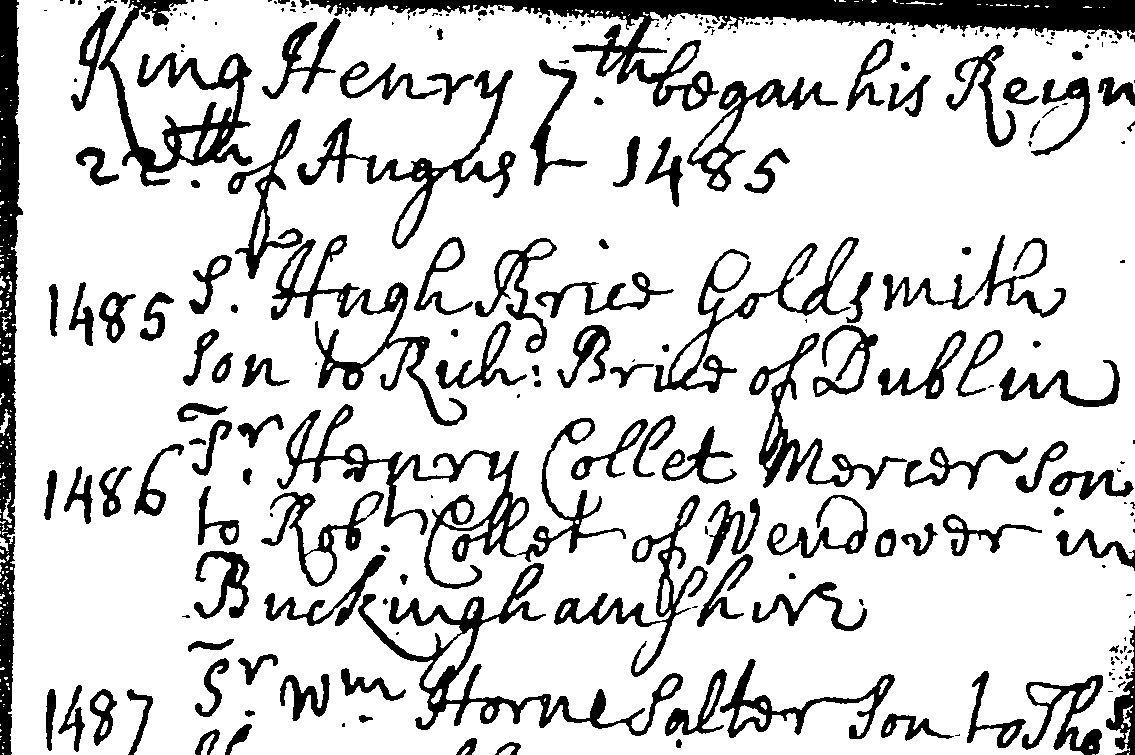 King Henry 7.th began his Reign
22.th of August 1485
1485 Sr. Hugh Brice Goldsmith
Son to Richd: Brice of Dublin
1486 Sr. Henry Collet Mercer Son
to Robt. Collet of Wendover in
Buckinghamshire
1487 Sr. Wm. Horne Salter Son to Thos: